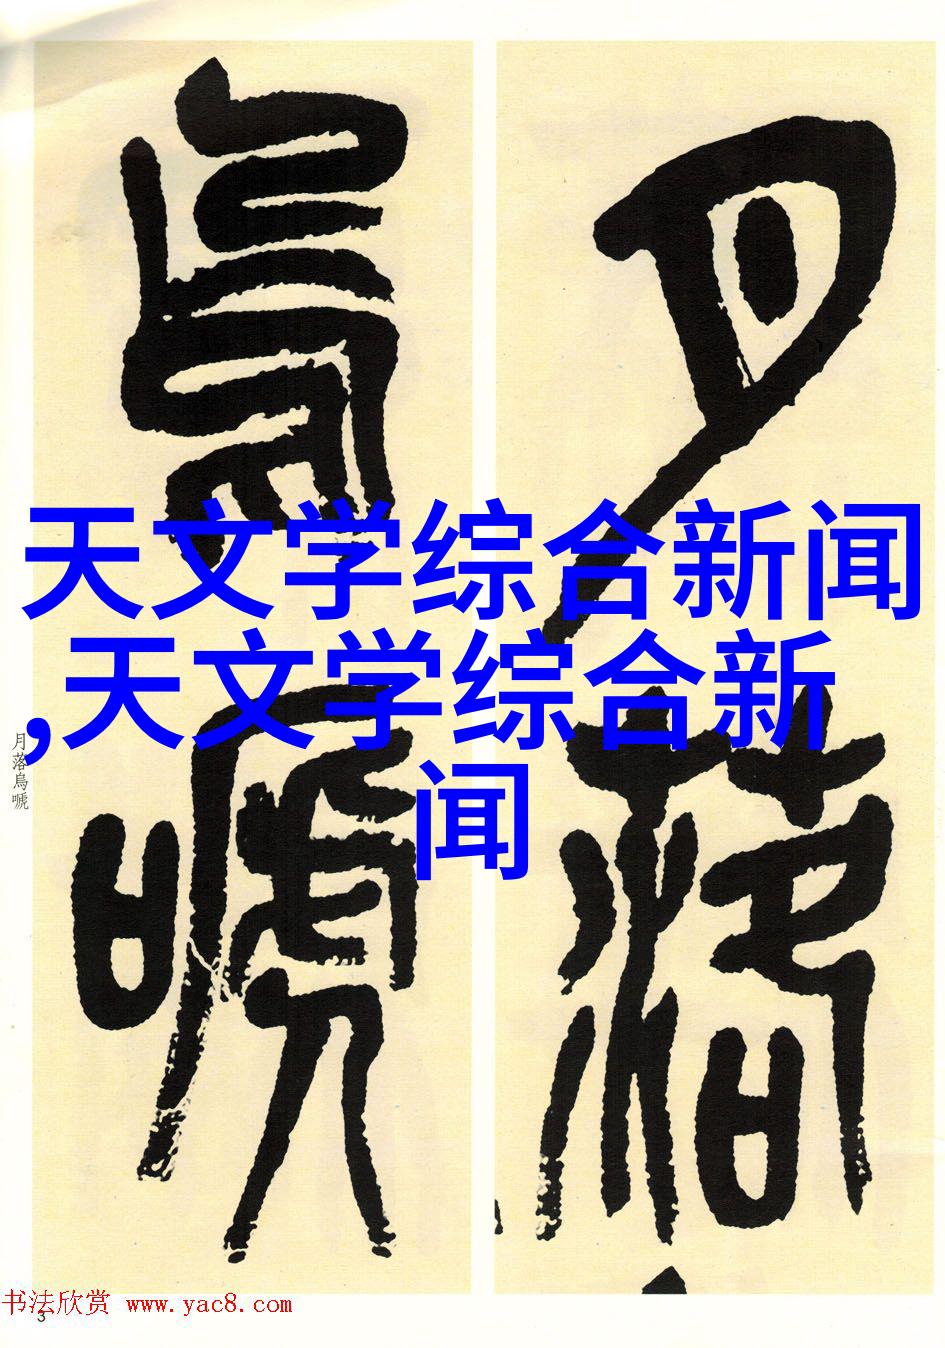 月落
烏嗁
天文学综合新闻
,天文学综合新
闻
月落烏嗁
书法欣赏 www.yac8.com
3